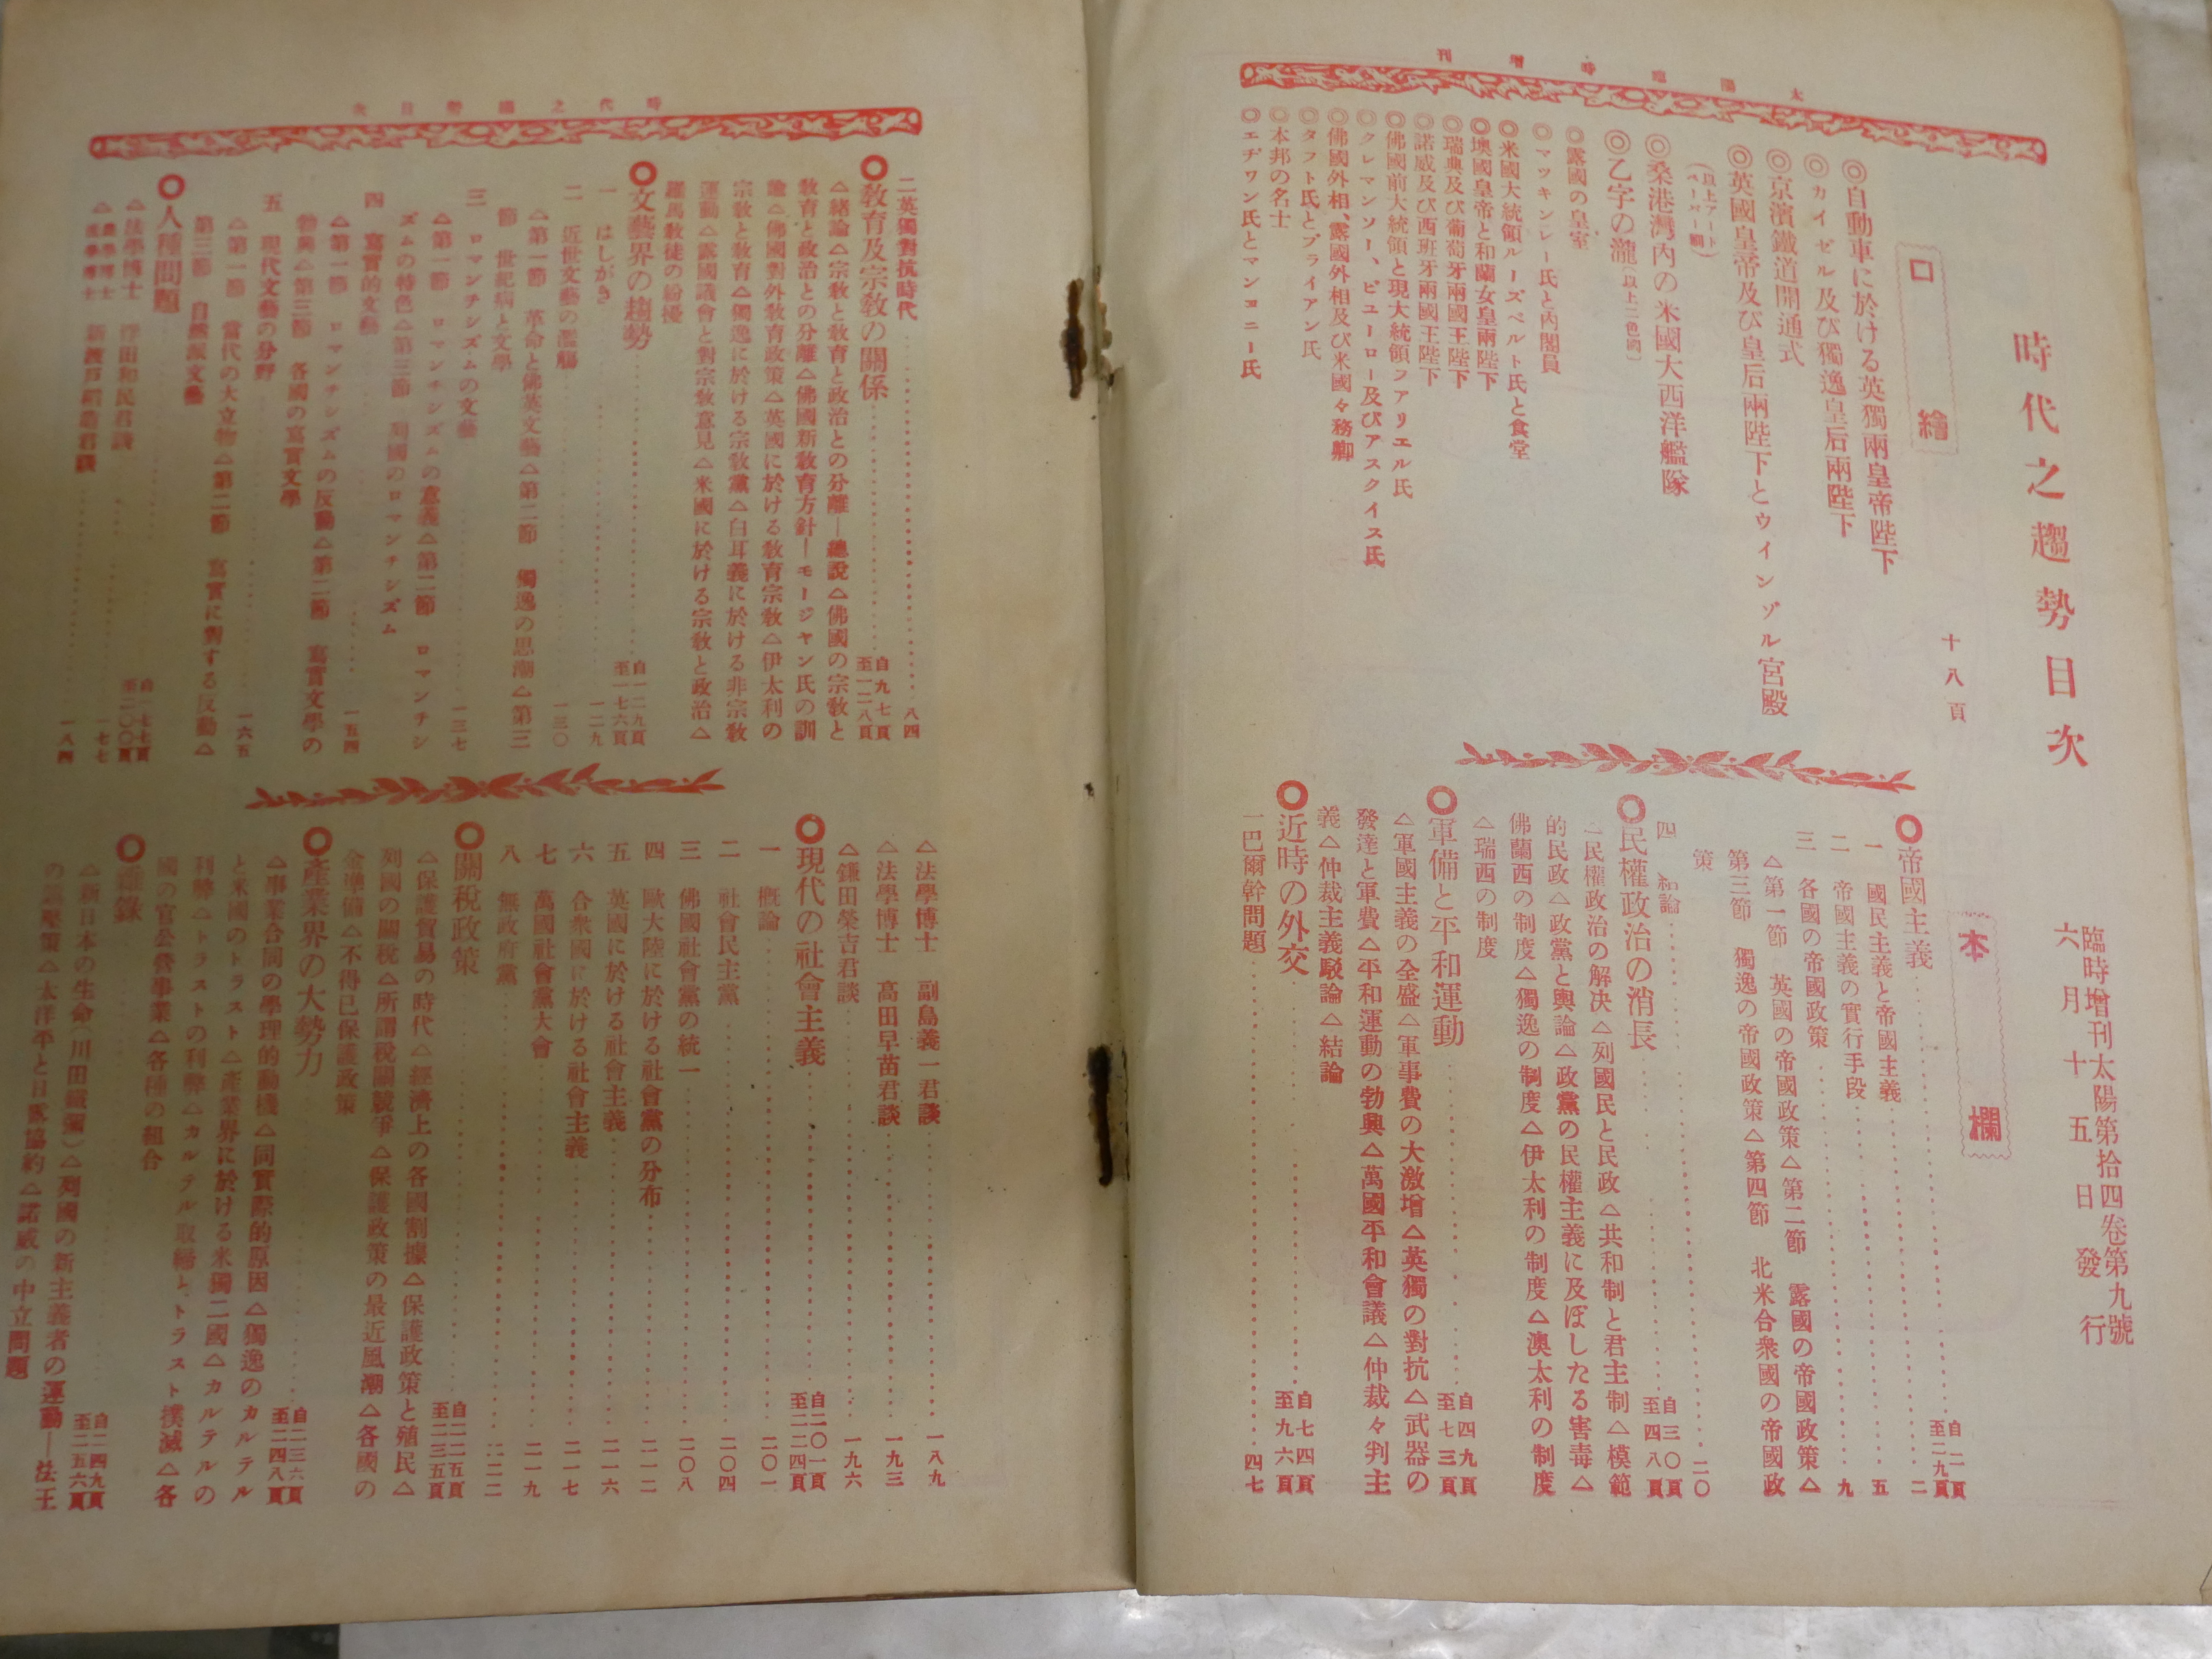 太陽臨時增刊
時代之趨勢目次
臨時增刊太陽第拾四卷第九號
六月十五日發行
口繪
十八頁
◎自動車に於ける英獨兩皇帝陛下
◎カイゼル及び獨逸皇后兩陛下
◎京濱鐵道開通式
◎英國皇帝及び皇后兩陛下とウインゾル宮殿
(以上アートペーパー刷)
◎桑港灣內の米國大西洋艦隊
◎乙字の瀧(以上二色刷)
◎露國の皇室
◎マツキンレー氏と內閣員
◎米國大統領ルーズベルト氏と食堂
◎墺國皇帝と和蘭女皇兩陛下
◎瑞典及び葡萄牙兩國王陛下
◎諾威及び西班牙兩國王陛下
◎佛國前大統領と現大統領フアリエル氏
◎クレマンソー、ビユーロー及びアスクイス氏
◎佛國外相、露國外相及び米國々務卿
◎タフト氏とブライアン氏
◎本邦の名士
◎エヂワン氏とマンヨニー氏
本欄
◎帝國主義……自二頁至二九頁
一 國民主義と帝國主義……二
二 帝國主義の實行手段……五
三 各國の帝國政策……九
△第一節 英國の帝國政策△第二節 露國の帝國政策△
第三節 獨逸の帝國政策△第四節 北米合衆國の帝國政
策
四 結論……二〇
◎民權政治の消長……自三〇頁至四八頁
一民權政治の解決△列國民と民政△共和制と君主制△模範
的民政△政黨と輿論△政黨の民權主義に及ぼしたる害毒△
佛蘭西の制度△獨逸の制度△伊太利の制度△澳太利の制度
△瑞西の制度
◎軍備と平和運動……自四九頁至七三頁
△軍國主義の全盛△軍事費の大激增△英獨の對抗△武器の
發達と軍費△平和運動の勃興△萬國平和會議△仲裁々判主
義△仲裁主義駁論△結論
◎近時の外交……自七四頁至九六頁
一巴爾幹問題……四七
時代之趨勢目次
二英獨對抗時代……八四
◎敎育及宗敎の關係……自九七頁至一二八頁
△緒論△宗敎と敎育と政治との分離―總說△佛國の宗敎と
敎育と政治との分離△佛國新敎育方針―モージヤン氏の訓
諭△佛國對外敎育政策△英國に於ける敎育宗敎△伊太利の
宗敎と敎育△獨逸に於ける宗敎黨△白耳義に於ける非宗敎
運動△露國議會と對宗敎意見△米國に於ける宗敎と政治△
羅馬敎徒の紛擾
◎文藝界の趨勢……自一二九頁至一七六頁
一 はしがき……一二九
二 近世文藝の濫觴……一三〇
△第一節 革命と佛英文藝△第二節 獨逸の思潮△第三
節 世紀病と文學
三 ロマンチシズムの文藝……一三七
△第一節 ロマンチシズムの意義△第二節 ロマンチシ
ズムの特色△第三節 列國のロマンチシズム
四 寫實的文藝……一五四
△第一節 ロマンチシズムの反動△第二節 寫實文學の
勃興△第三節 各國の寫實文學
五 現代文藝の分野……一六五
△第一節 當代の大立物△第二節 寫實に對する反動△
第三節 自然派文藝
◎人種問題……自一七七頁至二〇〇頁
△法學博士 浮田和民君談……一七七
△農學博士 新渡戶稻造君談……一八四
△法學博士 副島義一君談……一八九
△法學博士 高田早苗君談……一九三
△鎌田榮吉君談……一九六
◎現代の社會主義……自二〇一頁至二二四頁
一 槪論……二〇一
二 社會民主黨……二〇四
三 佛國社會黨の統一……二〇八
四 歐大陸に於ける社會黨の分布……二一二
五 英國に於ける社會主義……二一六
六 合衆國に於ける社會主義……二一七
七 萬國社會黨大會……二一九
八 無政府黨……二二二
◎關稅政策……自二二五頁至二三五頁
△保護貿易の時代△經濟上の各國割據△保護政策と殖民△
列國の關稅△所謂稅關競爭△保護政策の最近風潮△各國の
金準備△不得已保護政策
◎產業界の大勢力……自二三六頁至二四八頁
△事業合同の學理的動機△同實際的原因△獨逸のカルテル
と米國のトラスト△產業界に於ける米獨二國△カルテルの
利弊△トラストの利弊△カルテル取締とトラスト撲滅△各
國の官公營事業△各種の組合
◎雜錄……自二四九頁至二五六頁
△新日本の生命(川田鐵彌)△列國の新主義者の運動―法王
の 壓策△太洋平と日露協約△諾威の中立問題